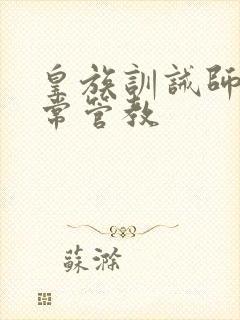 皇族訓誡師
常管教
蘇滁